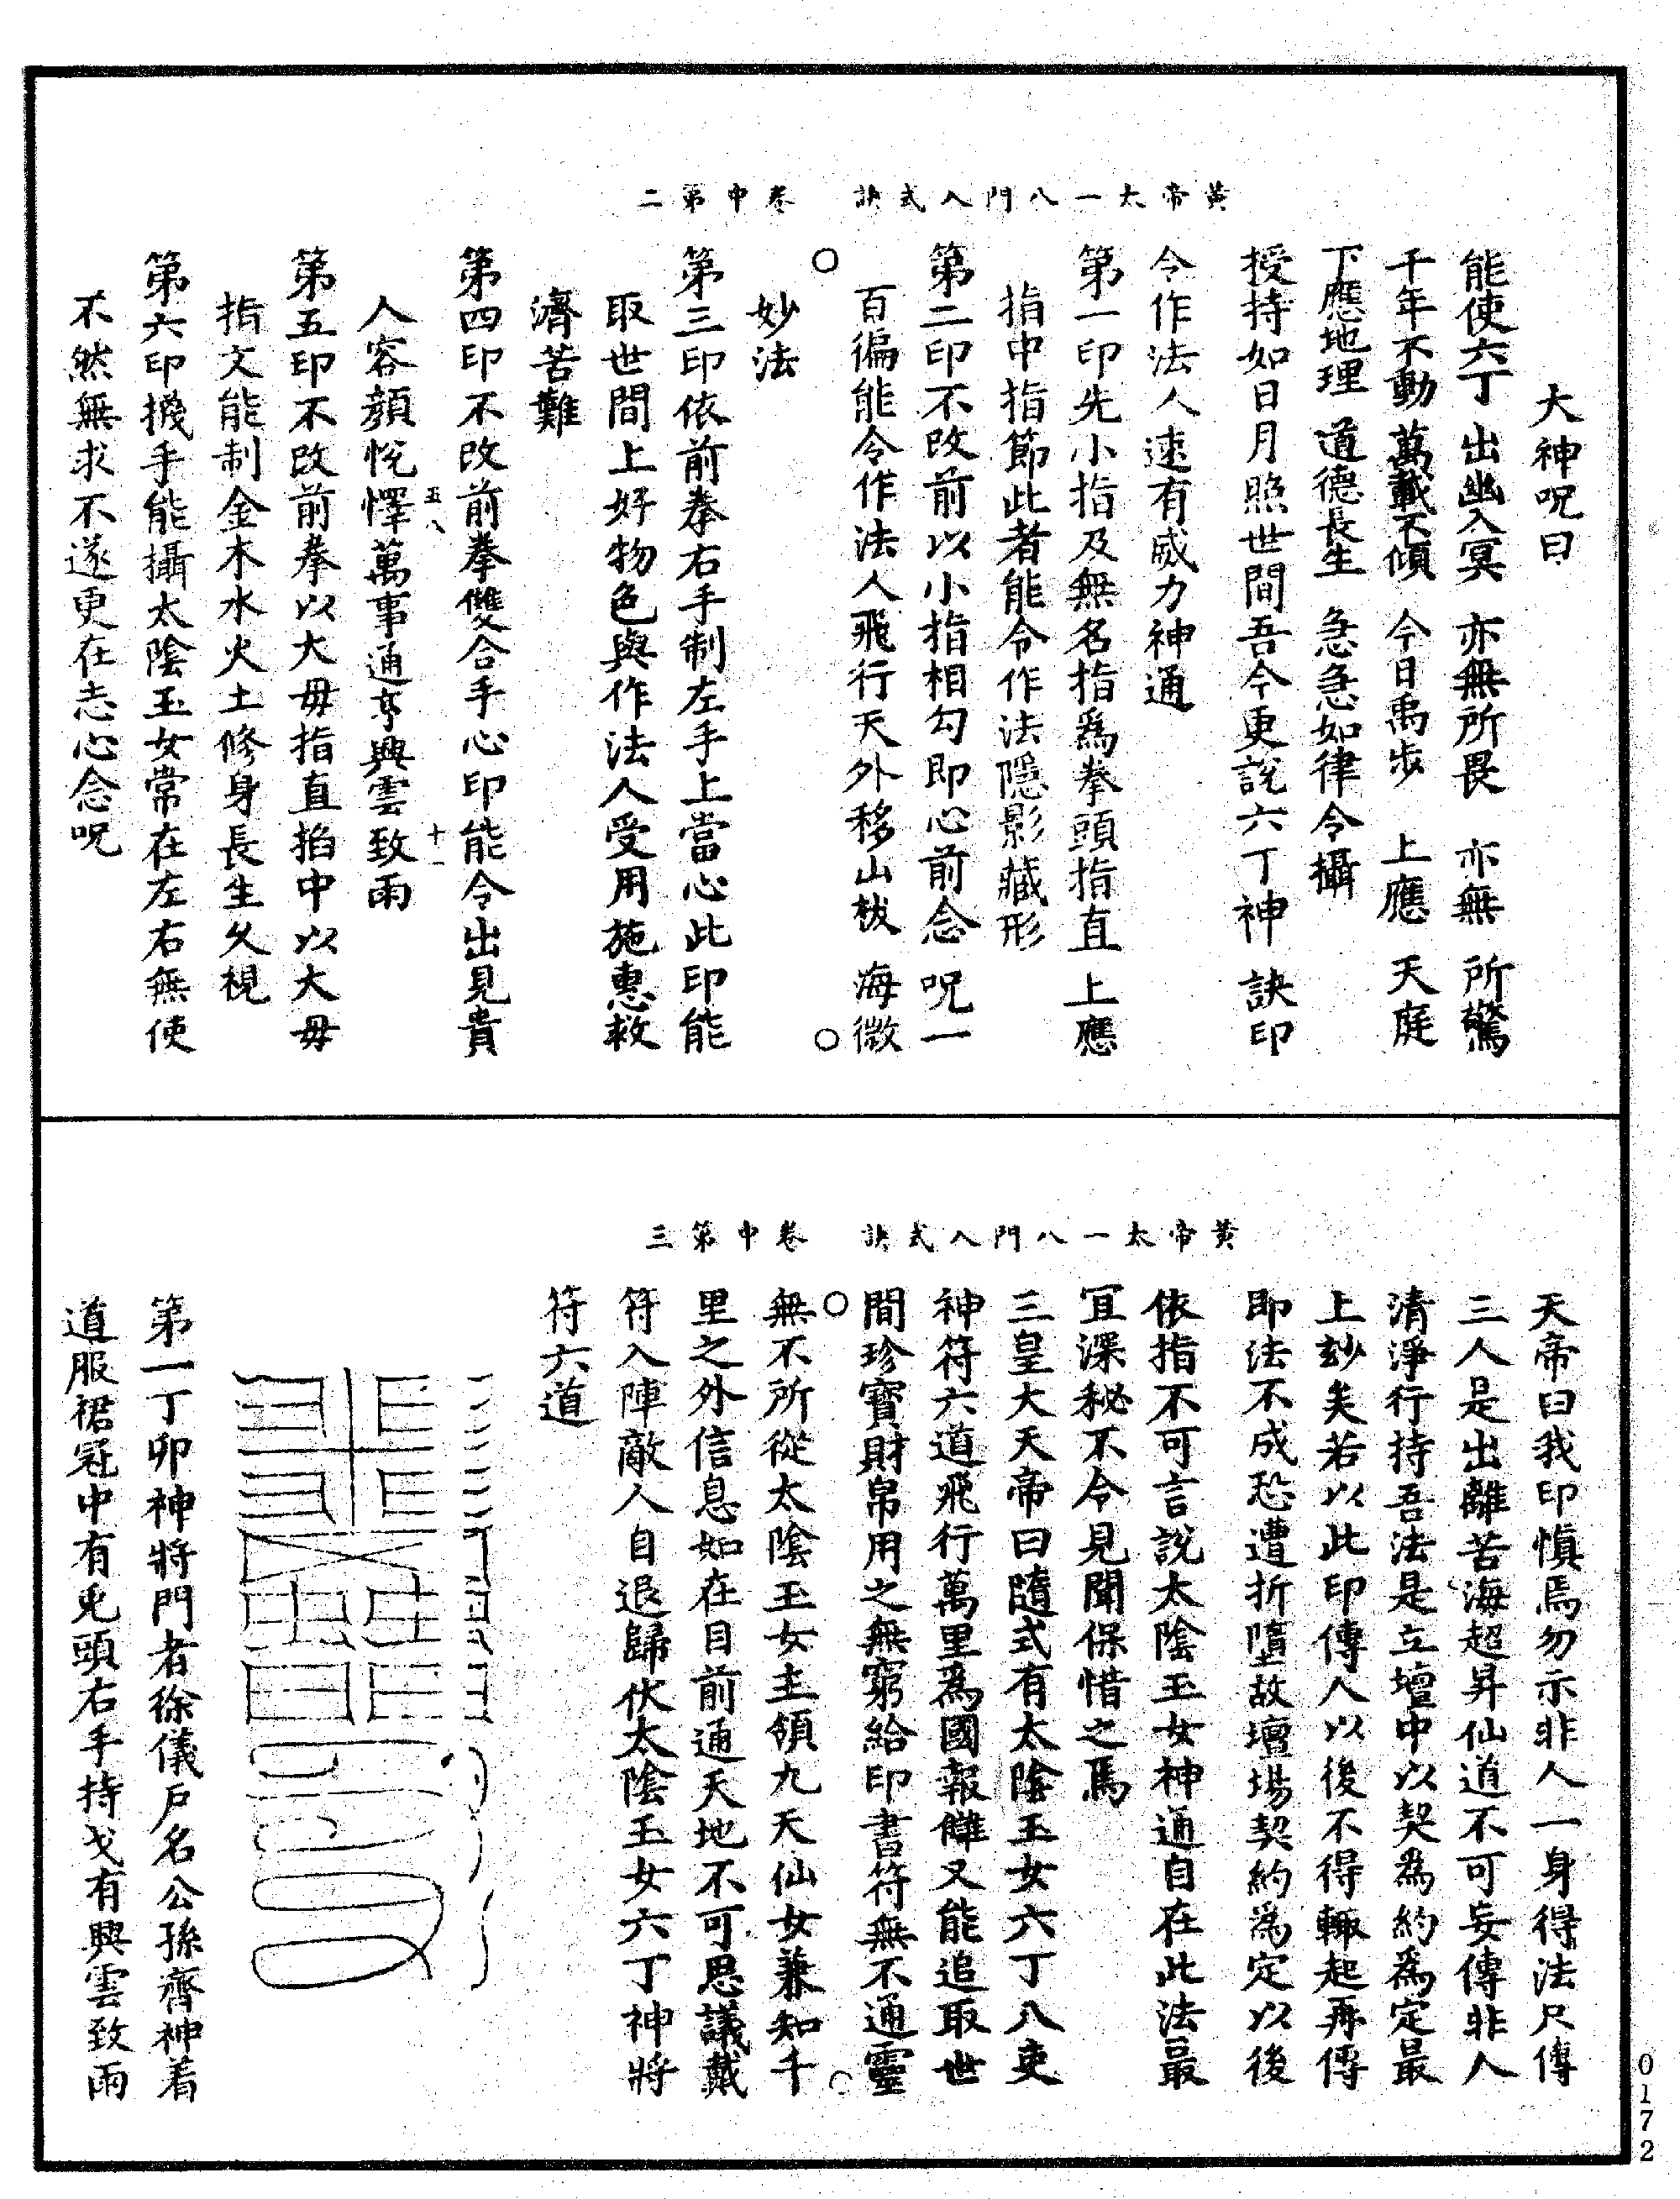 黃帝太一八門入式訣　卷中第二
大神呪曰
能使六丁　出幽入冥　亦無所畏　亦無所驚
千年不動　萬載不傾　今日禹步　上應天庭
下應地理　道德長生　急急如律令攝
授持如日月照世間吾今更說六丁神訣印
令作法人速有威力神通
第一印先小指及無名指爲拳頭指直上應
指中指節此者能令作法隱影藏形
第二印不改前以小指相勾即心前念呪一
百徧能令作法人飛行天外移山拔海微
妙法
第三印依前拳右手制左手上當心此印能
取世間上好物色與作法人受用施惠救
濟苦難
第四印不改前拳雙合手心印能令出見貴
人容顏悅懌萬事通亨興雲致雨
五八
十一
第五印不改前拳以大母指直掐中以大母
指文能制金木水火土修身長生久視
第六印擬手能攝太陰玉女常在左右無使
不然無求不遂更在志心念呪
黃帝太一八門入式訣　卷中第三
天帝曰我印愼焉勿示非人一身得法只傳
三人是出離苦海超昇仙道不可妄傳非人
清淨行持吾法是立壇中以契爲約爲定最
上玅矣若以此印傳人以後不得輙起再傳
即法不成恐遭折墮故壇場契約爲定以後
依指不可言說太陰玉女神通自在此法最
宜深秘不令見聞保惜之焉
三皇大天帝曰隨式有太陰玉女六丁八吏
神符六道飛行萬里爲國報讎又能追取世
間珍寶財帛用之無窮給印書符無不通靈
無不所從太陰玉女主領九天仙女兼知千
里之外信息如在目前通天地不可思議戴
符入陣敵人自退歸伏太陰玉女六丁神將
符六道
第一丁卯神將門者徐儀戶名公孫齊神着
道服裙冠中有兎頭右手持戈有興雲致雨
0172